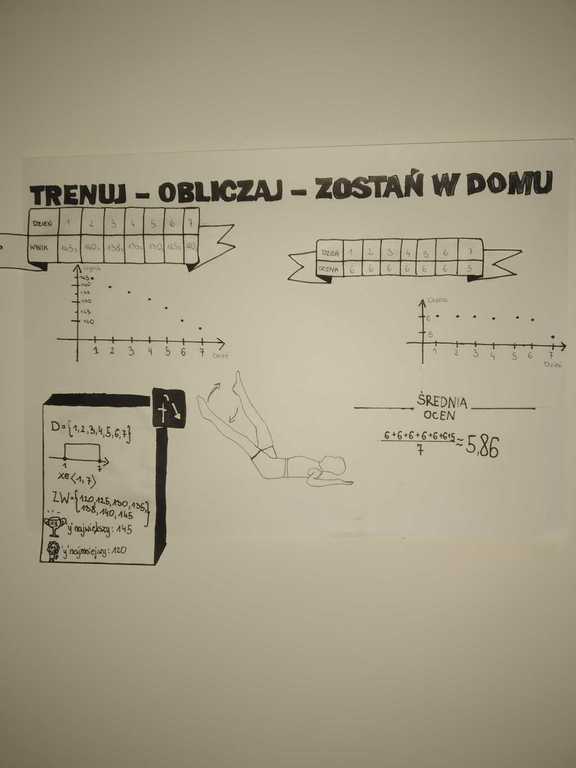 TRENUJ - OBLICZAJ - ZOSTAŃ W DOMU
DZIEŃ 1 2 3 4 5 6 7
WYNIK 145s 140s 138s 135s 130s 125s 120
DZIEŃ 1 2 3 4 5 6 7
OCENA 6 6 6 6 6 6 5
Wynik
145
140
120
1 2 3 4 5 6 7
Dzień
Ocena
6
5
1 2 3 4 5 6 7
Dzień
D={1,2,3,4,5,6,7}
1 7
x∈⟨1,7⟩
ZW={120,125,130,135,
138,140,145}
y największy: 145
y najmniejszy: 120
f
ŚREDNIA
OCEN
6+6+6+6+6+6+5
7
≈5,86